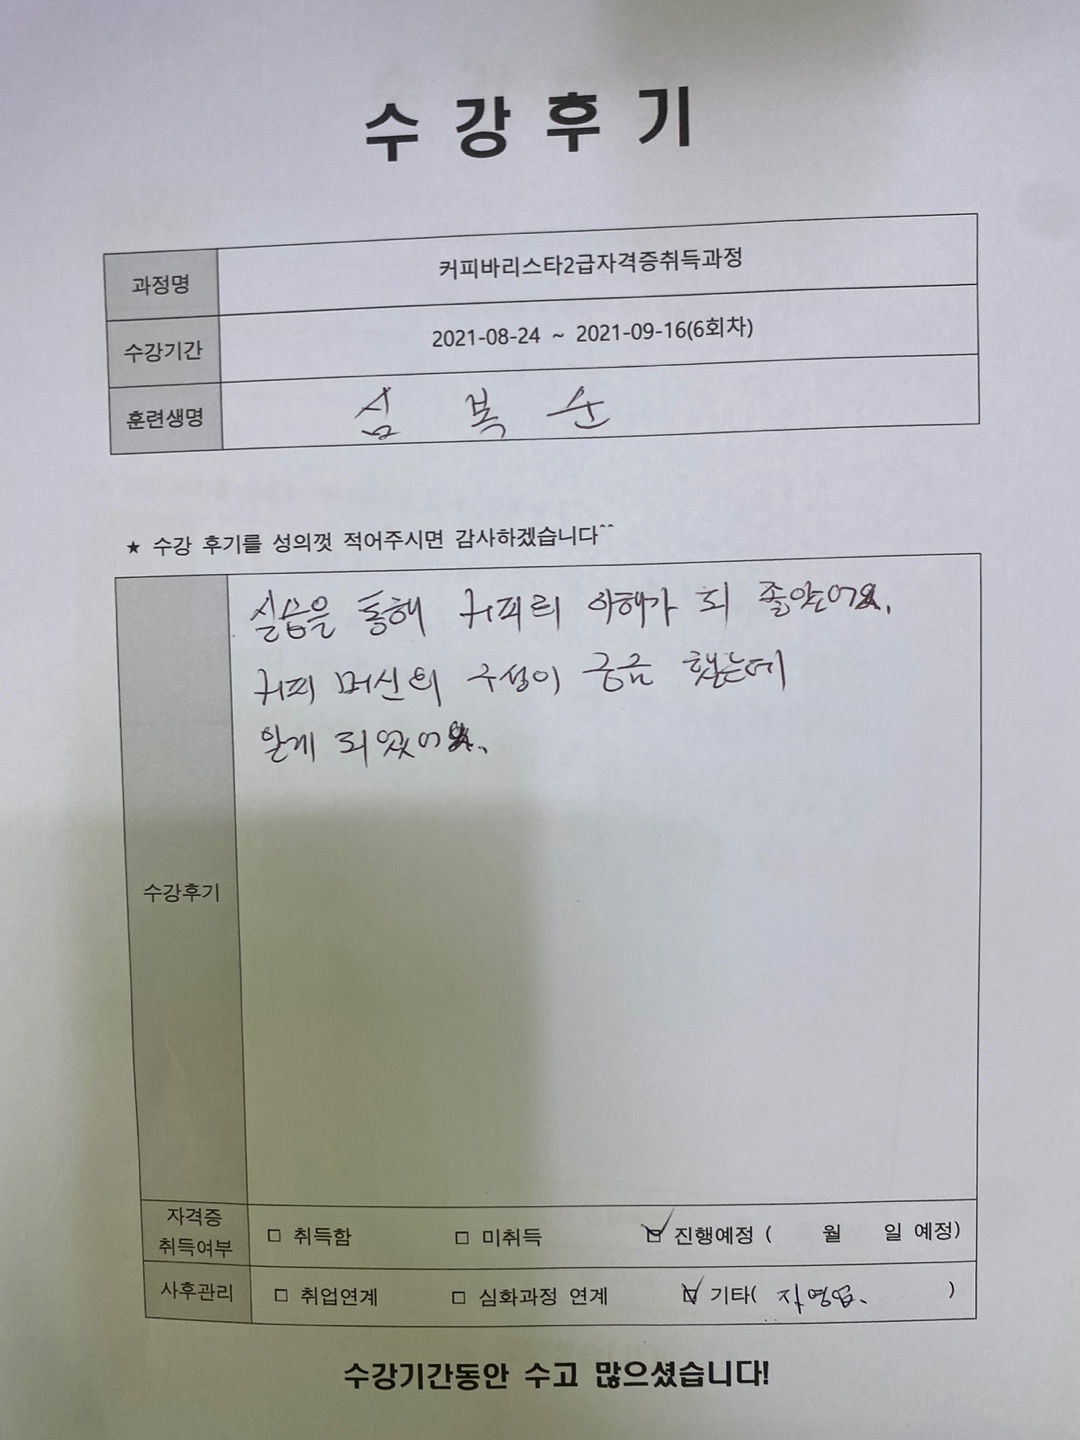 수강후기
과정명 커피바리스타2급자격증취득과정
수강기간 2021-08-24 ~ 2021-09-16(6회차)
훈련생명 심복순
★ 수강 후기를 성의껏 적어주시면 감사하겠습니다^^
실습을 통해 커피의 이해가 되 좋았어요.
커피 머신의 구성이 궁금 했는데
알게 되었어요.
수강후기
자격증
취득여부 □ 취득함 □ 미취득 ☑ 진행예정 ( 월 일 예정)
사후관리 □ 취업연계 □ 심화과정 연계 ☑ 기타( 자영업. )
수강기간동안 수고 많으셨습니다!